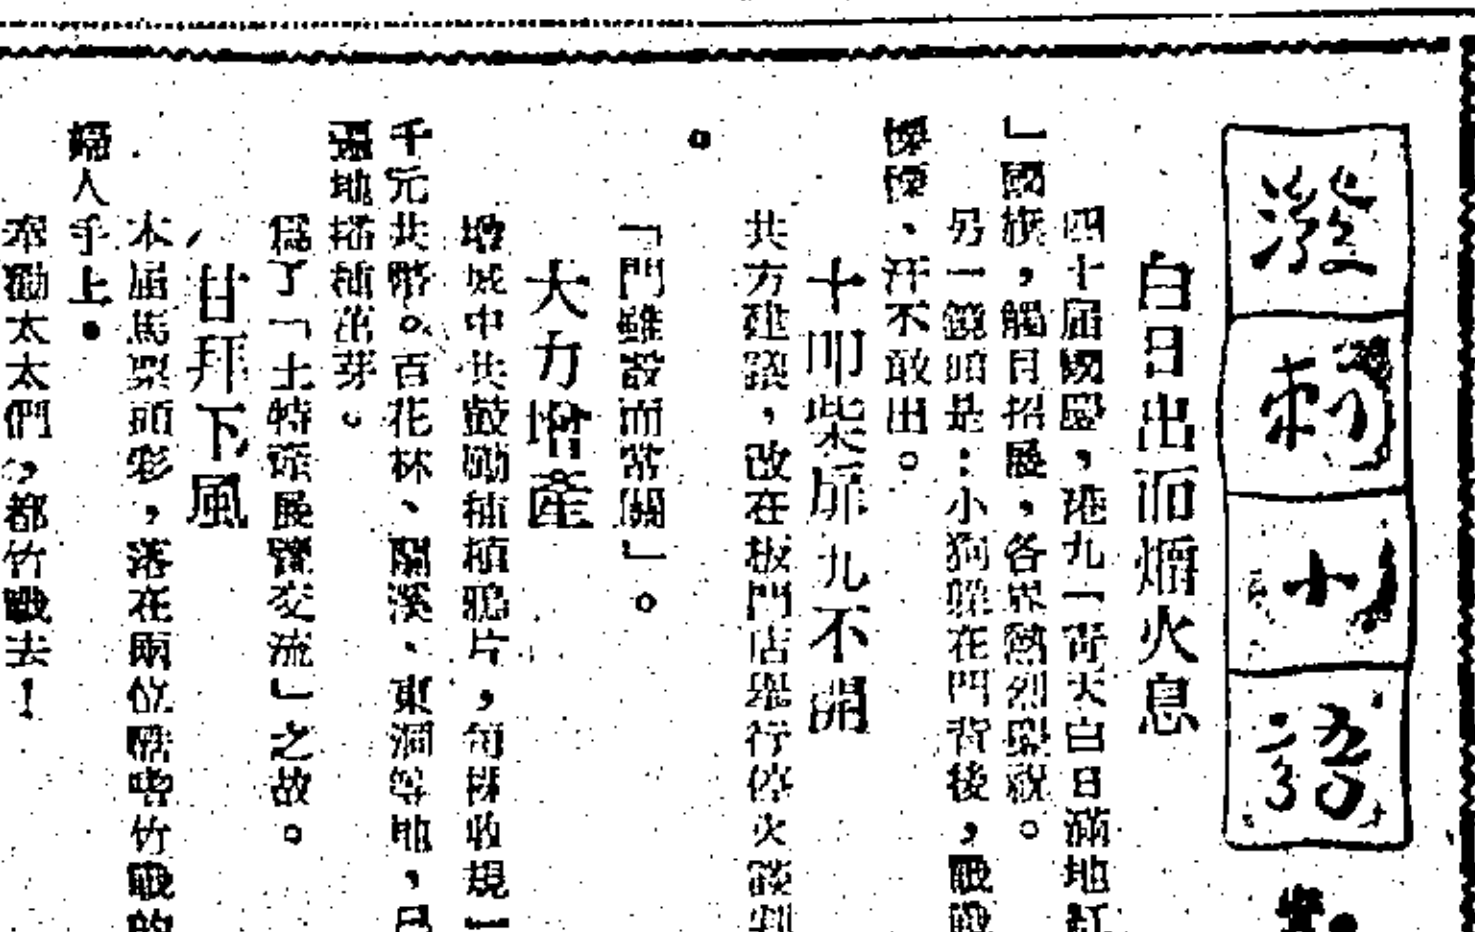 潑刺小語
白日出而爝火息
四十屆國慶，港九「青天白日滿地紅
」國旗，觸目招展，各界熱烈慶祝。
另一鏡頭是：小狗躲在門背後，戰戰
慄慄、汗不敢出。
十叩柴扉九不開
共方建議，改在板門店舉行停火談判
。
「門雖設而常關」。
大力增產
增城中共鼓勵種植鴉片，每株收規一
千元共幣。百花林、蘭溪、東洞等地，已
遍地播種茁芽。
爲了「土特產展覽交流」之故。
甘拜下風
本屆馬票頭彩，落在兩位酷嗜竹戰的
婦人手上。
奉勸太太們，都竹戰去！